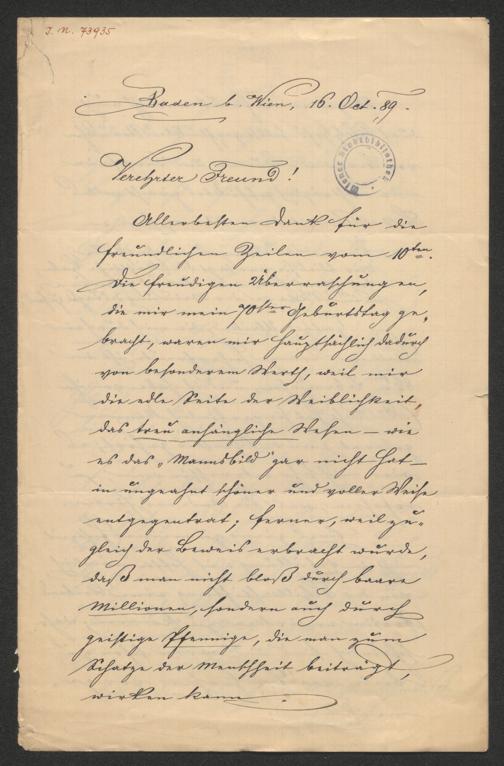 J. N. 73935
Baden b. Wien, 16. Oct. 89.
Wiener Stadtbibliothek
Verehrter Freund!
Allerbesten Dank für die
freundlichen Zeilen vom 10ten.
Die freudigen Überraschungen,
die mir mein 70ster Geburtstag ge-
bracht, waren mir hauptsächlich dadurch
von besonderem Werth, weil mir
die edle Seite der Weiblichkeit,
das treu anhängliche Wesen – wie
es das „Mannsbild" gar nicht hat –
in ungeahnt schöner und voller Weise
entgegentrat; ferner, weil zu-
gleich der Beweis erbracht wurde,
daß man nicht bloß durch baare
Millionen, sondern auch durch
geistige Pfennige, die man zum
Schatze der Menschheit beiträgt,
wirken kann.